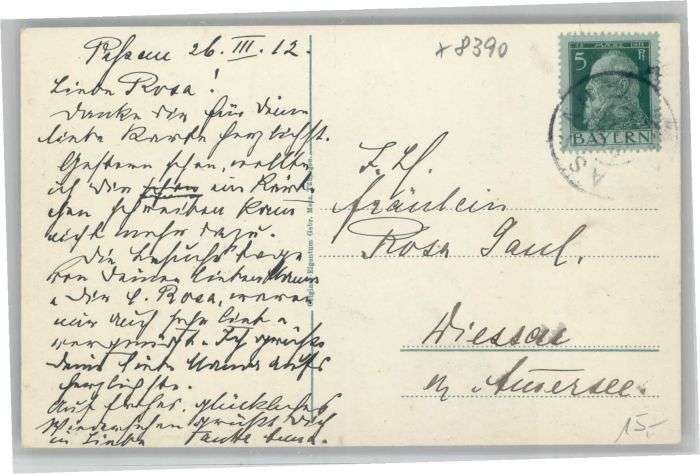 Passau 26.III.12.
Liebe Rosa!
Danke dir für deine
liebe Karte herzlichst.
Gestern schon, wollte
ich dir schon ein Kärt-
chen schreiben kam
nicht mehr dazu.
Die Besuchstage
von deiner lieben Mama
u. dir l. Rosa, waren
mir auch sehr lieb u.
vergnügt. Ich grüße
deine liebe Mama aufs
herzlichste.
Auf frohes, glückliches
Wiedersehen grüßt dich
in Liebe Tante
x 8390
5 Pf
BAYERN
Fräulein
Rosa Paul.
Diessen
Ammersee.
15,-